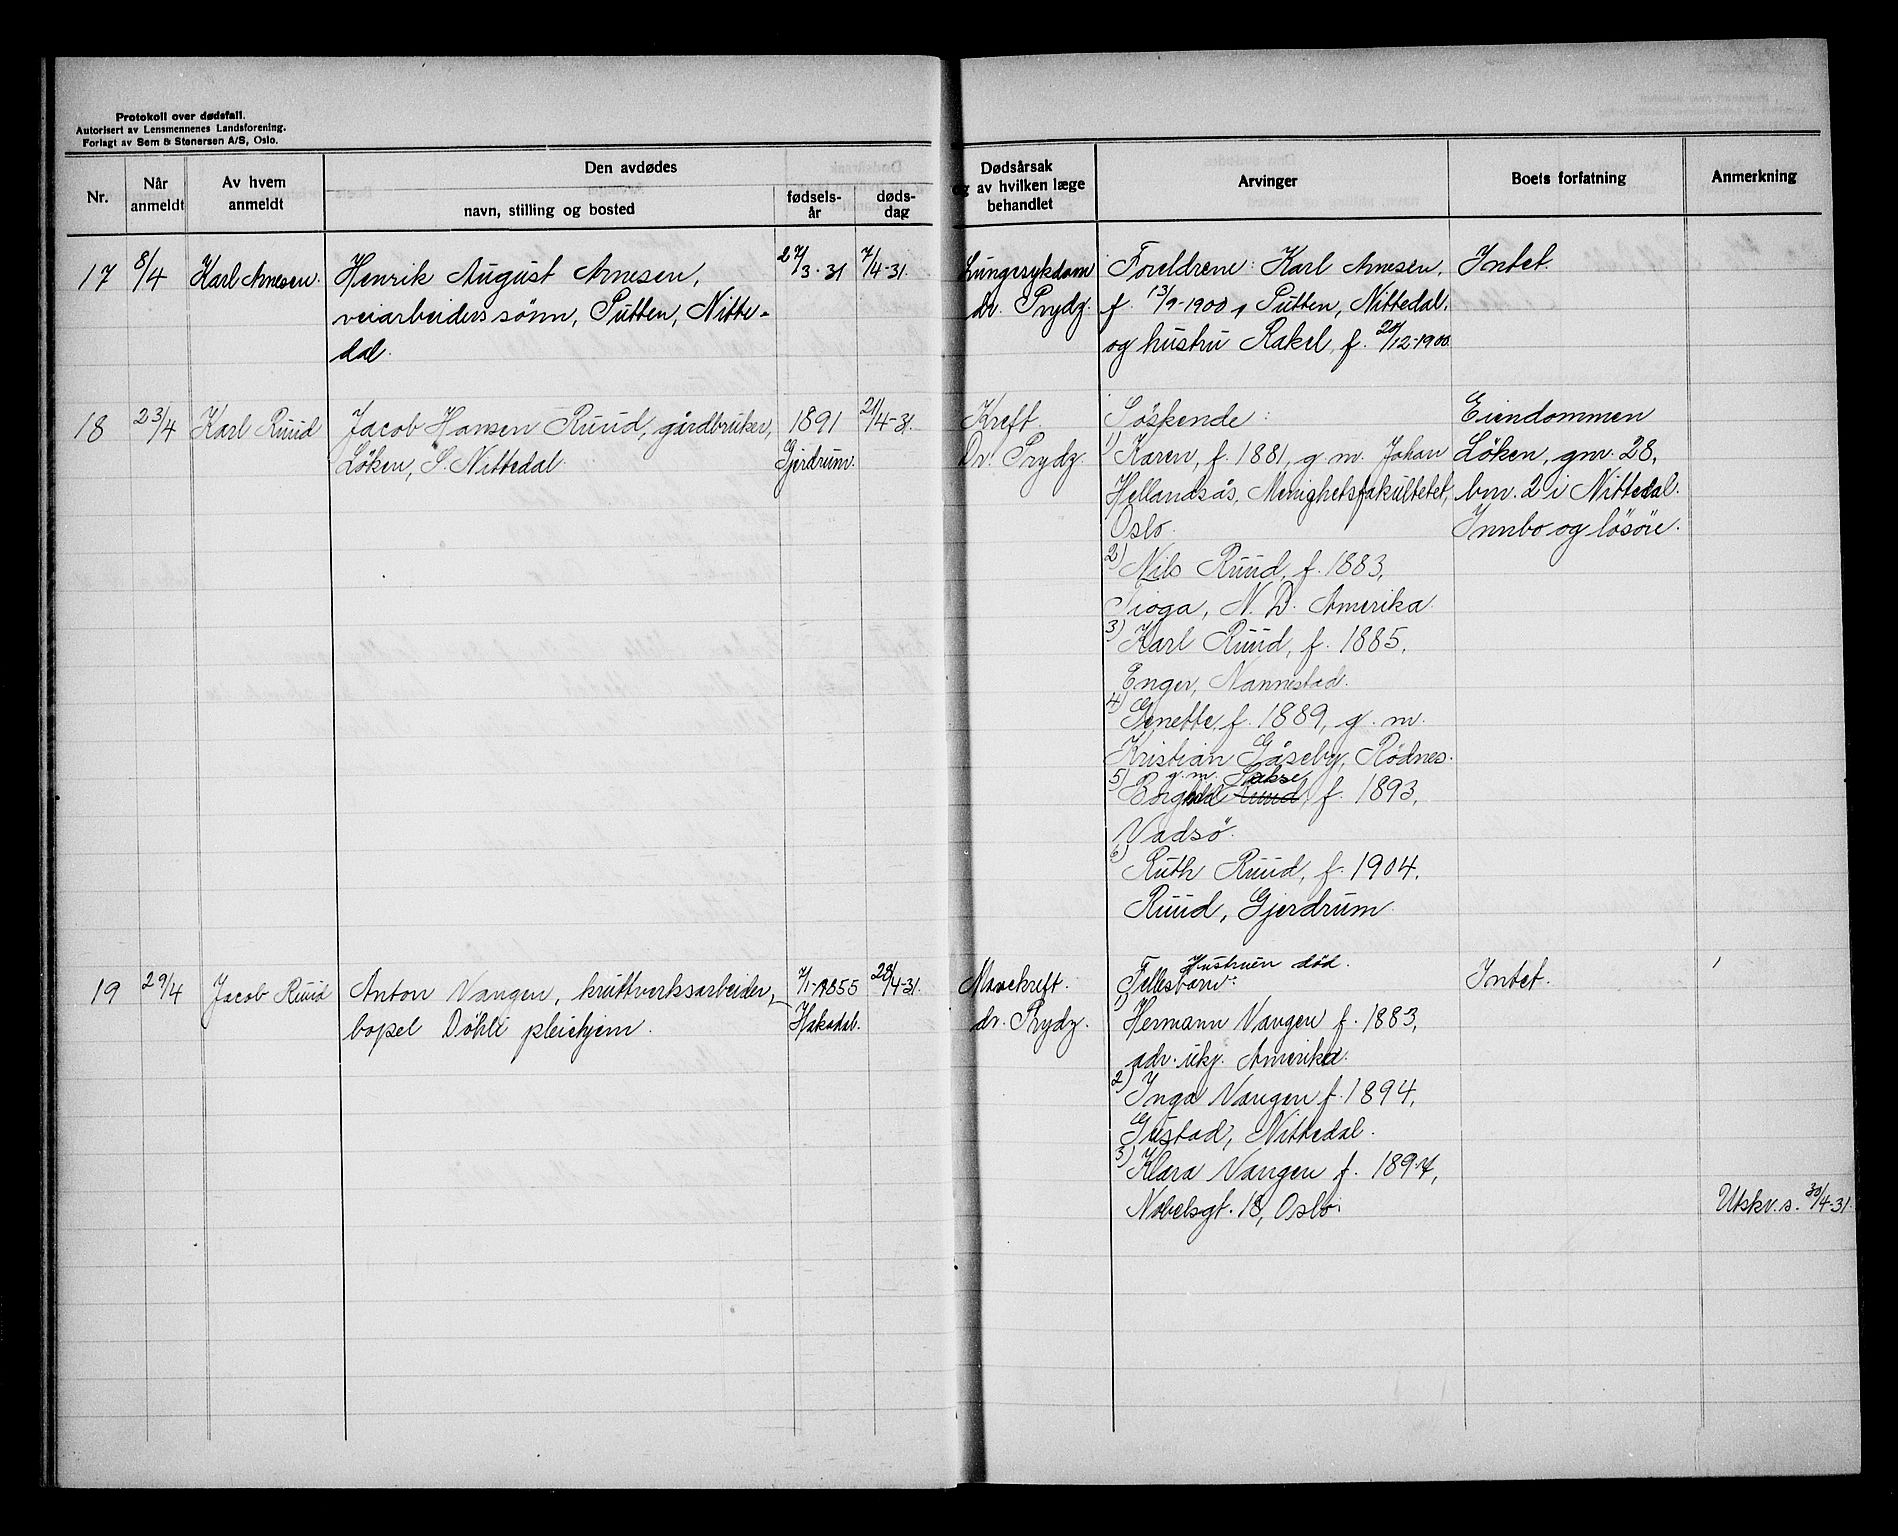 Protokoll over dødsfall.
Autorisert av Lensmennenes Landsforening.
Forlagt av Sem & Stenersen A/S, Oslo.
Nr.
Når anmeldt
Av hvem anmeldt
Den avdødes
navn, stilling og bosted
fødselsår
dødsdag
Dødsårsak
og av hvilken læge
behandlet
Arvinger
Boets forfatning
Anmerkning
17 8/4 Karl Arnesen. Henrik August Arnesen, 27/3-31 7/4-31.
veiarbeiders sönn, Sutten, Nitte-
dal.
Lungesykdom
dr. Prydz.
Foreldrene: Karl Arnesen,
f. 13/9-1900, Sutten, Nittedal,
og hustru Rakel, f. 20/12-1900.
Intet.
18 23/4 Karl Ruud Jacob Hansen Ruud, gårdbruker, 1891 21/4-31.
Löken, S. Nittedal. Gjerdrum.
Kreft.
Dr. Prydz.
Söskende:
1) Karen, f. 1881, g. m. Johan
Hellandsås, Menighetsfakultetet,
Oslo.
2) Nils Ruud, f. 1883,
Tioga, N. D. Amerika.
3) Karl Ruud, f. 1885,
Enger, Nannestad.
4) Ginette, f. 1889, g. m.
Kristian Gåseby, Rödnes.
g. m. Sakse
5) Borghild Ruud, f. 1893,
Vadsö.
6) Ruth Ruud, f. 1904,
Ruud, Gjerdrum.
Eiendommen
Löken, gnr. 28,
bnr. 2 i Nittedal.
Innbo og lösöre.
19 29/4 Jacob Ruud Anton Vangen, kruttverksarbeider, 7/1-1855 28/4-31.
bopel Döhli pleiehjem. Hakadal.
Mavekreft.
dr. Prydz.
Hustruen död.
Fellesbarn:
1) Hermann Vangen f. 1883,
adr. ukj. Amerika.
2) Inga Vangen f. 1894,
Gustad, Nittedal.
3) Klara Vangen f. 1897,
Nobelsgt. 18, Oslo.
Intet.
Utskr. s. 30/4-31.